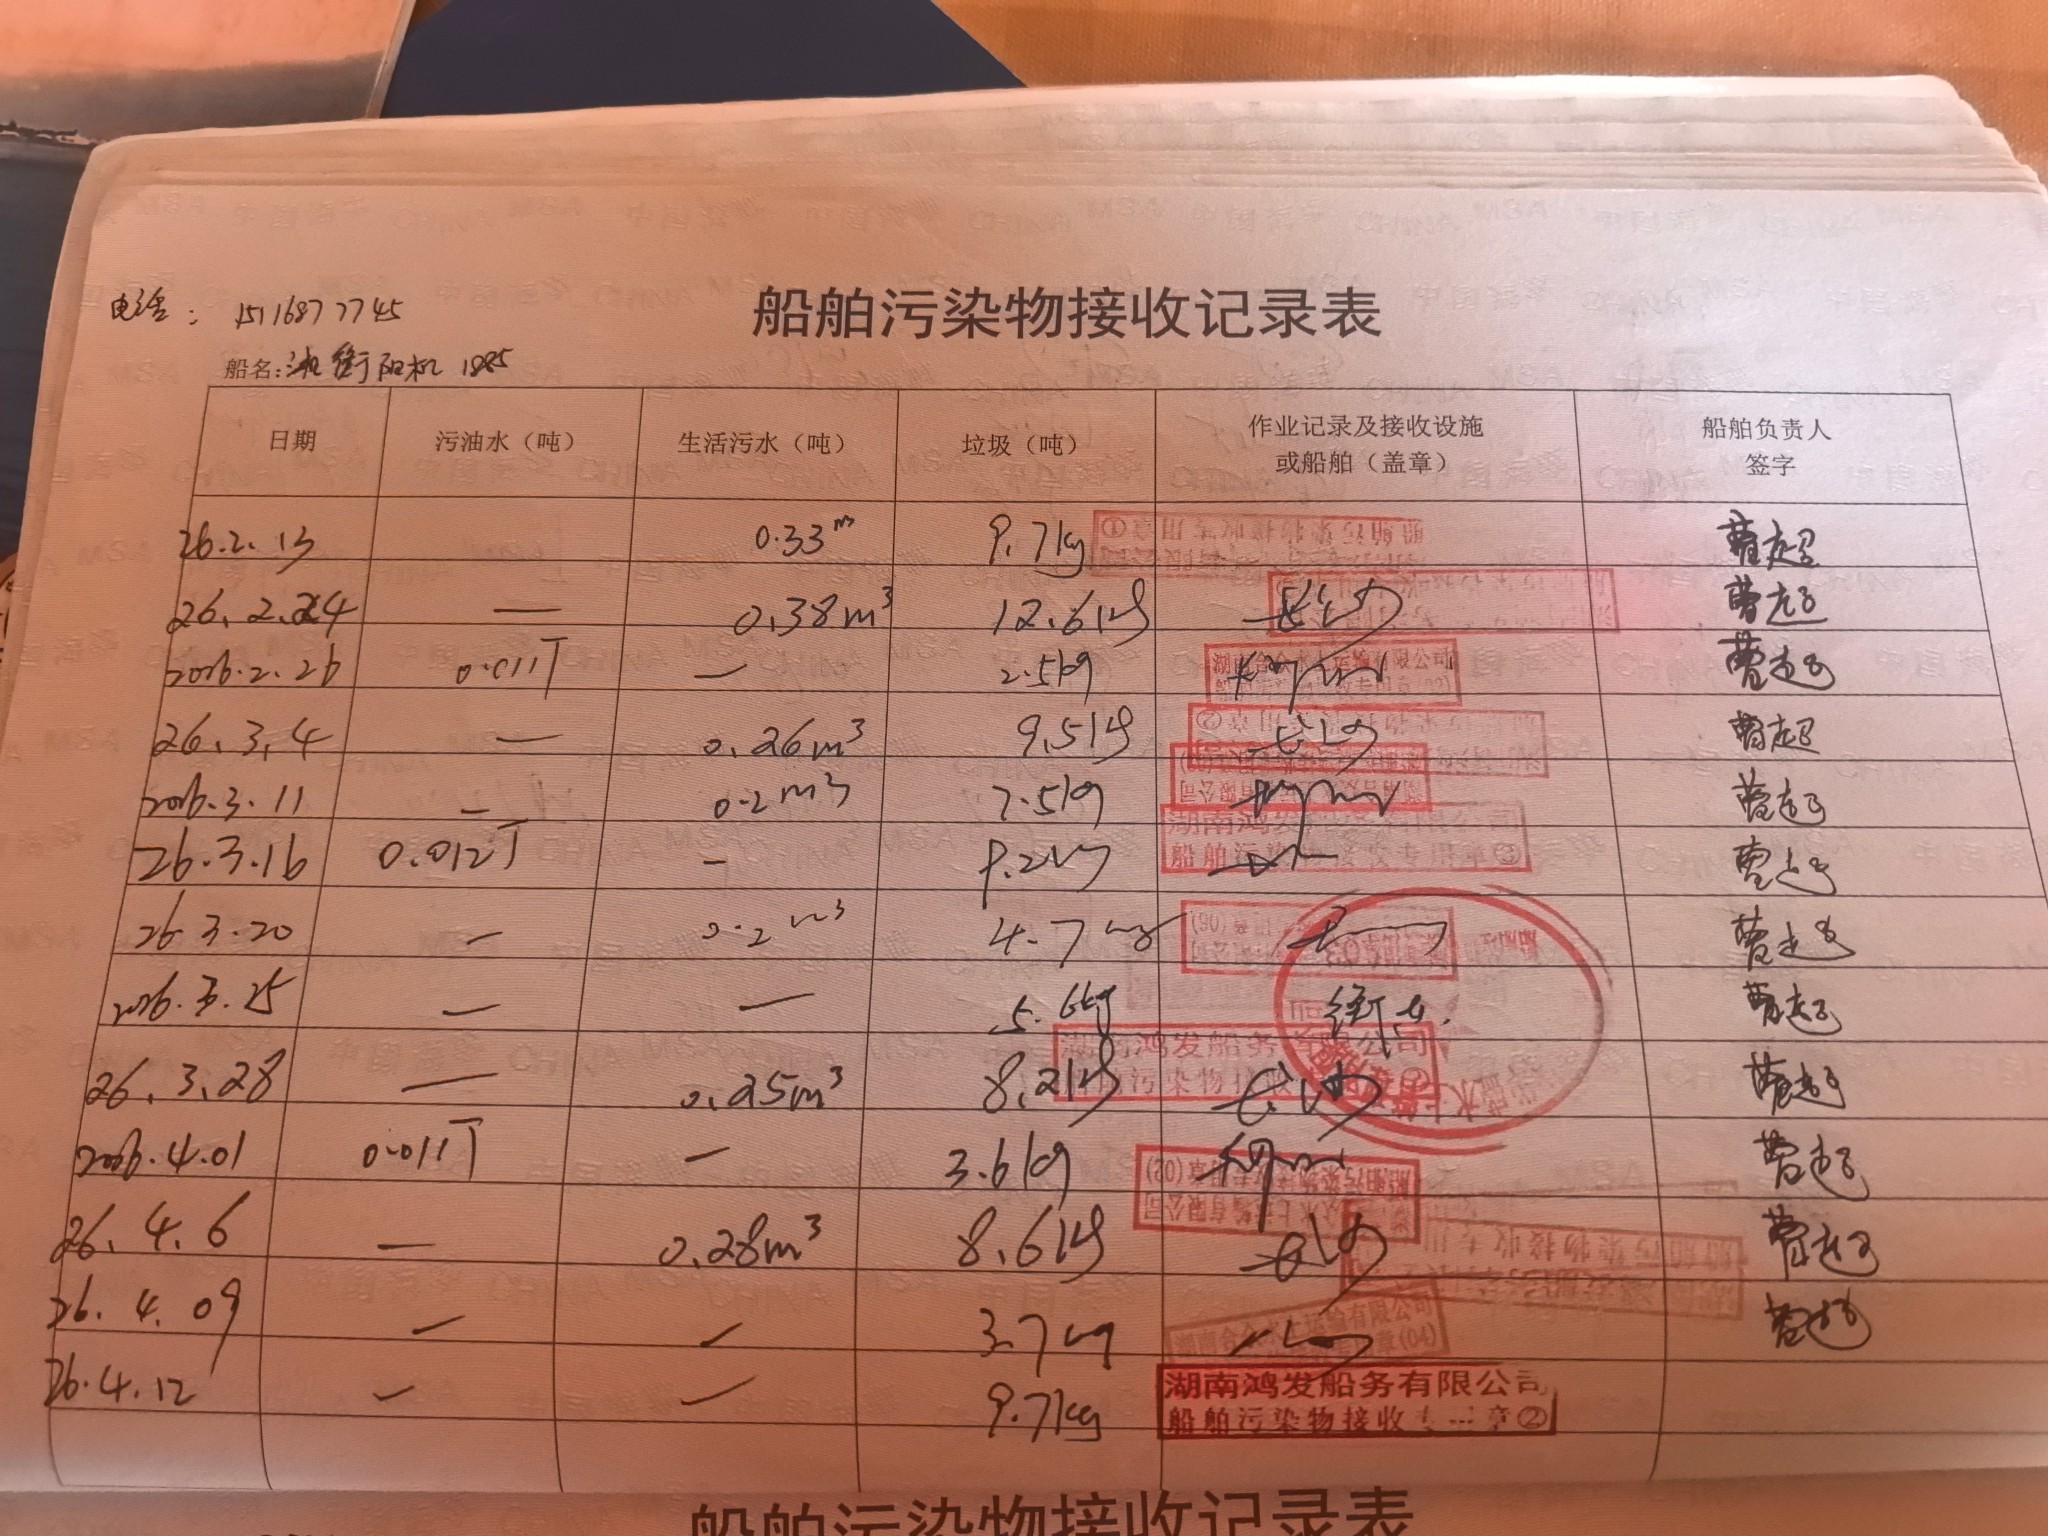 船舶污染物接收记录表
电话: 15116877745
船名:湘衡阳机 1885
日期 污油水（吨） 生活污水（吨） 垃圾（吨） 作业记录及接收设施或船舶（盖章） 船舶负责人签字
26.2.13 0.33m 9.7kg 曹超
26.2.24 — 0.38m³ 12.6kg 曹超
2026.2.26 0.011T — 2.5kg 湖南合众水上运输有限公司 曹超
26.3.4 — 0.26m³ 9.5kg 曹超
2026.3.11 — 0.2m³ 7.5kg 曹超
26.3.16 0.012T — 9.2kg 湖南鸿发船务有限公司 船舶污染物接收专用章③ 曹超
26.3.20 — 0.2m³ 4.7kg 曹超
2026.3.25 — — 5.6kg 曹超
26.3.28 — 0.25m³ 8.2kg 湖南鸿发船务有限公司 曹超
2026.4.01 0.011T — 3.6kg 船舶污染物接收专用章(02) 曹超
26.4.6 — 0.28m³ 8.6kg 曹超
26.4.09 — — 3.7kg 湖南合众水上运输有限公司 章(04) 曹超
26.4.12 — — 9.7kg 湖南鸿发船务有限公司
船舶污染物接收专用章②
船舶污染物接收记录表